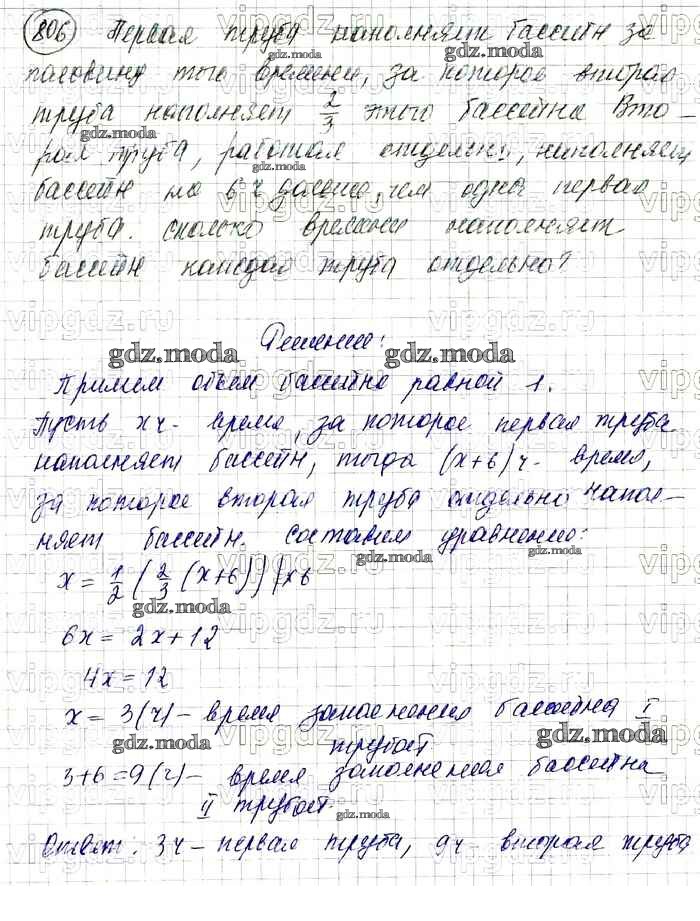 806 Первая труба наполняет бассейн за
половину того времени, за которое вторая
труба наполняет 2/3 этого бассейна Вто-
рая труба, работая отдельно, наполняет
бассейн на 6 ч дольше, чем одна первая
труба. сколько времени наполняет
бассейн каждая труба отдельно?
Решение:
Примем объем бассейна равной 1.
Пусть x ч - время, за которое первая труба
наполняет бассейн, тогда (x+6) ч - время,
за которое вторая труба отдельно напол-
няет бассейн. Составим уравнение:
x = 1/2 (2/3 (x+6)) | x6
6x = 2x + 12
4x = 12
x = 3 (ч) - время заполнения бассейна I
трубой
3+6=9 (ч) - время заполнения бассейна
II трубой.
Ответ: 3ч - первая труба, 9ч - вторая труба
gdz.moda
vipgdz.ru